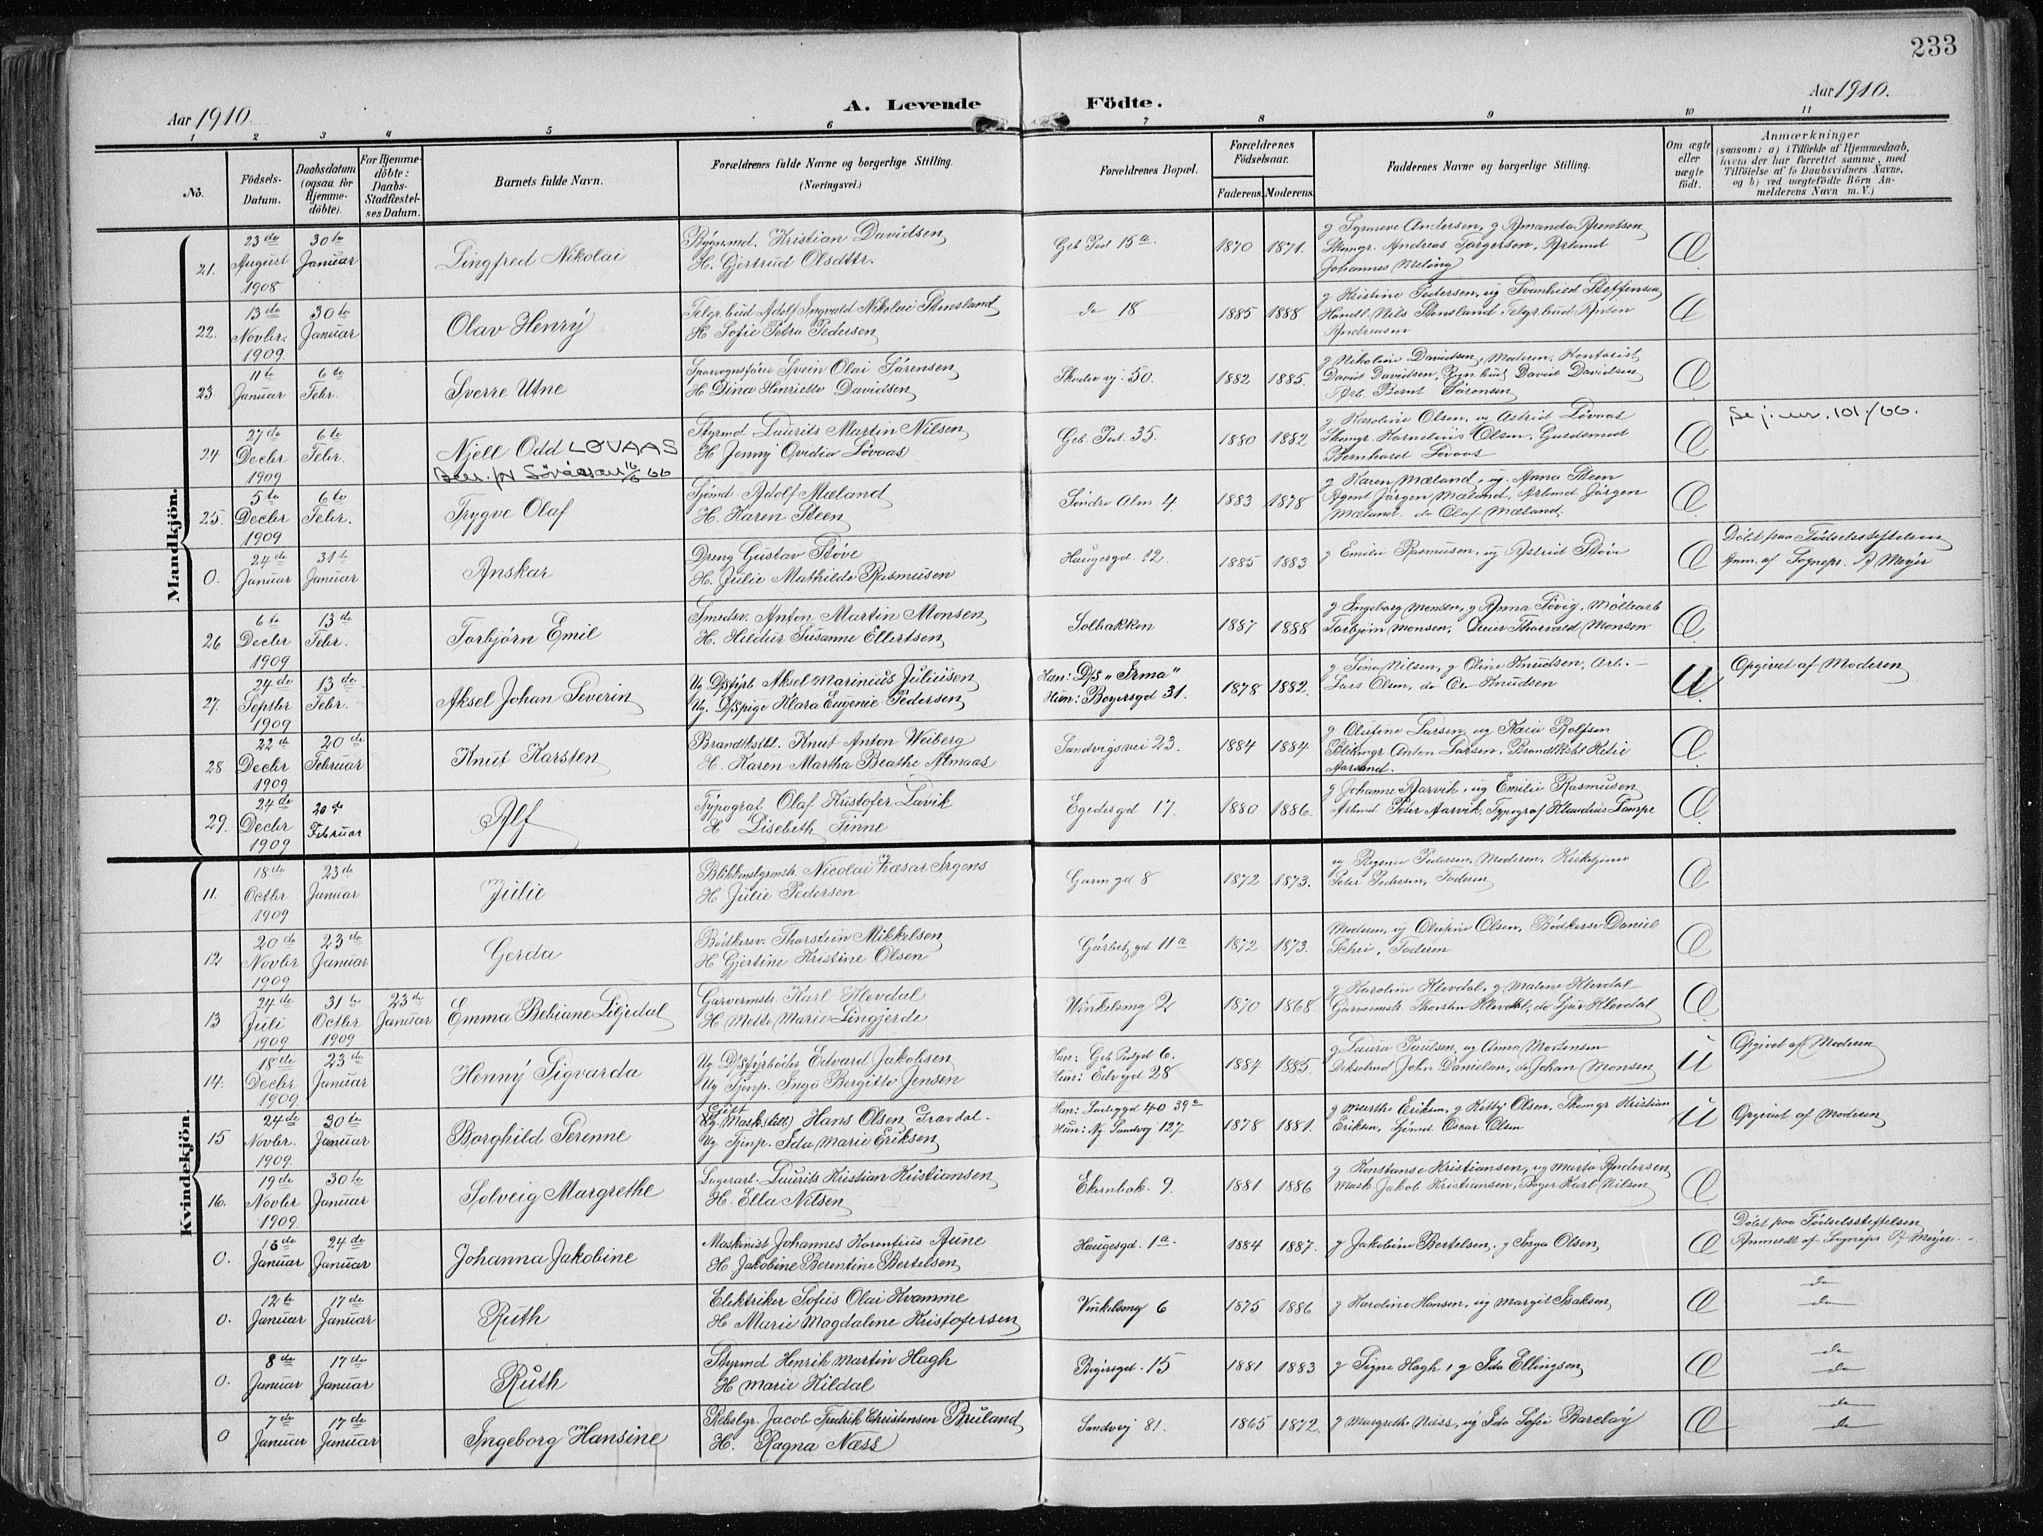 233
Aar 1910.
A. Levende Födte.
Aar 1910.
1 2 3 4 5 6 7 8 9 10 11
No.
Födsels-Datum.
Daabsdatum (ogsaa for Hjemme-döbte).
For Hjemme-döbte: Daabs-Stadfæstel-ses Datum.
Barnets fulde Navn.
Forældrenes fulde Navne og borgerlige Stilling. (Næringsvei.)
Forældrenes Bopæl.
Forældrenes Födselsaar.
Faderens. Moderens.
Faddernes Navne og borgerlige Stilling.
Om ægte eller uægte födt.
Anmærkninger
(saasom: a) i Tilfælde af Hjemmedaab, hvem der har forrettet samme, med Tilföielse af to Daabsvidners Navne, og b) ved uægtefödte Börn An-melderens Navn m. V.)
Mandkjön.
21. 23de August 1908 30te Januar Lingfred Nikolai
Bygn.md. Kristian Davidsen
H. Gjertrud Olsdttr.
Geb Pod 15a. 1870 1871.
g Synneve Andersen, g Amanda Arentsen
Skomgr. Andreas Torgersen, Arbmd
Johannes Meling
Æ
22. 13de Novbr. 1909. 30te Januar Olav Henry
Telgr.bud Adolf Ingvald Nikolai Stensland
H Sofie Petra Pedersen
do 18 1885 1888
g Kristine Pedersen, ug Svanhild Steffensen
Handl. Nils Stensland, Telgrbud Anton
Andreasen
Æ
23 11te Januar 6te Febr. Sverre Utne
Sporvognsfører Svein Olai Sørensen
H Dina Henriette Davidsen
Skoder vj. 50. 1882 1885.
g Nikoline Davidsen, Moderen, Kontorist
David Davidsen, Bgn.bud David Davidsen
Arb. Bernt Sørensen
Æ
24 27de Decbr 1909 6te Febr. Njell Odd LØVAAS
Styrmd Laurits Martin Nilsen
H Jenny Ovidia Løvaas
Geb Pod. 35. 1880 1882
g Karoline Olsen, ug Astrid Løvaas
Skomgr. Kornelius Olsen, Gardemod
Bernhard Løvaas
Æ
Se j.nr. 101/66.
25. 5te Decbr 1909 6te Febr. Trygve Olaf
Sjømd Adolf Mæland
H. Karen Steen
Søndre Alm 4 1883 1878
g Karen Mæland, ug. Anna Steen
Agent Jørgen Mæland, Arbmd Jørgen
Mæland. do Olaf Mæland.
Æ
0. 24de Januar 31te Januar Anskar
Dreng Gustav Støve
H. Julie Mathilde Rasmusen
Haugesgd 12. 1885 1883
g Emilie Rasmusen, ug Astrid Støve
Æ
Døbt paa Fødselsstiftelsen
Anm. af Sognepr. A Meyer
26 6te Decbr 1909 13de Febr. Torbjørn Emil
Smedsv. Anton Martin Monsen
H. Hildur Susanne Ellertsen
Solbakken 1887 1888
g Ingeborg Monsen, g Anna Søvig, Møllearb
Torbjørn Monsen, Thorvald Monsen
Æ
27. 24de Septbr 1909 13de Febr. Aksel Johan Severin
Ug D/Styrb Aksel Marinius Juliusen
Ug. D/Spige Klara Eugenie Pedersen
Han: D/S "Irma"
Hun: Bøyersgd 31. 1878 1882.
g Sina Nilsen, g Oline Knudsen, Arb.
Lars Olsen, do Ole Knudsen
U
Opgivet af Moderen
28 22de Decbr 1909 20de Februar Knut Karsten
Brandkstbl. Knut Anton Weiberg
H. Karen Martha Beathe Almaas
Sandvigsvei 23. 1884 1884
g Olufine Larsen, ug Kaia Rolfsen
Blikmgr Anton Larsen, Brandkstbl Helie
Aarsand.
Æ
29. 24de Decbr 1909 20de Februar Alf
Typograf Olaf Kristofer Lavik
H Lisebeth Finne
Egedesgd 17. 1880 1886.
g Johanne Aarvik, ug Emilie Rasmusen
Arbmd Peter Aarvik, Typograf Klaudius Lampe
Æ
Kvindekjön.
11. 18de Octbr 1909 23de Januar Julie
Blikkenslgrmstr. Nicolai Cæsar Irgens
H Julie Pedersen
Garmgd 8 1872 1873.
ug Regine Pedersen, Moderen, Kirketjener
Peter Pedersen, Faderen
Æ
12 20de Novbr 1909 23de Januar Gerda
Bødkersv. Thorstein Mikkelsen
H Gjertine Kristine Olsen
Gørbitzgd 11a 1872 1873.
Moderen, ug Olufine Olsen, Bødkersv Daniel
Schei, Faderen
Æ
13 24de Juli 1909 31te Octbr 1909 23de Januar Emma Bebiane Liljedal
Garvermstr. Karl Klevdal
H Mette Marie Lingjerde
Vinkelsmg 2 1870 1868.
g Karoline Klevdal, g Malene Klevdal
Garvermstr. Thorsten Klevdal, do Sjur Klevdal
Æ
14. 18de Decbr 1909 23de Januar Henny Sigvarda
Ug D/Styrbøder Edvard Jakobsen
Ug Tjenp. Inga Bergitte Jensen
Han: Geb Podgd 6.
Hun: Edvgd 28 1884 1885.
g Laura Paulsen, ug Anna Mortensen
Diksmd John Danielsen, do Johan Monsen
U
Opgivet af Moderen
15 24de Novbr. 1909. 30te Januar Borghild Serenne
Gift Mask(stbl) Hans Olsen Gravdal.
Ug. Tjenp. Ida Marie Eriksen
Han: 40 39a
Hun: Ny Sandvj 127 1878 1881.
g Marthe Eriksen, g Kitty Olsen, Skomgr Kristian
Eriksen, Sjømd Oscar Olsen
U
Opgivet af Moderen
16. 19de Novbr 1909. 30te Januar Solveig Margrethe
Lagerarb. Laurits Kristian Kristiansen
H. Ella Nilsen
Ekernbak. 9. 1881 1886
g Konstanse Kristiansen, ug Marta Andersen
Mask Jakob Kristiansen, Bager Karl Nilsen
Æ
0. 13de Januar 24de Januar Johanna Jakobine
Maskinist Johannes Korentius Aune
H Jakobine Berentine Bertelsen
Haugesgd. 1a 1884 1887.
g Jakobine Bertelsen, g Inga Olsen
Æ
Døbt paa Fødselsstiftelsen
Anmeldt af Sognepr. A Meyer
0. 12te Januar 17de Januar Ruth
Elektriker Sofus Olai Kvamme
H Marie Magdalene Kristofersen
Vinkelsmg 6 1875 1886
g Karoline Hansen, ug Margit Isaksen
Æ
do
do
0. 8de Januar 17de Januar Ruth
Styrmd Henrik Martin Hagh
H Marie Kildal
Bøgersgd. 15 1881 1883
g Signe Hagh, g Ida Ellingsen
Æ
do
do
0 7de Januar 17de Januar Ingeborg Hansine
Rebslgr. Jacob Fredrik Christensen Bruland
H. Ragna Næss
Sandvj 81. 1865 1872.
g Margrethe Næss, ug Ida Sofie Barclay
Æ
do
do